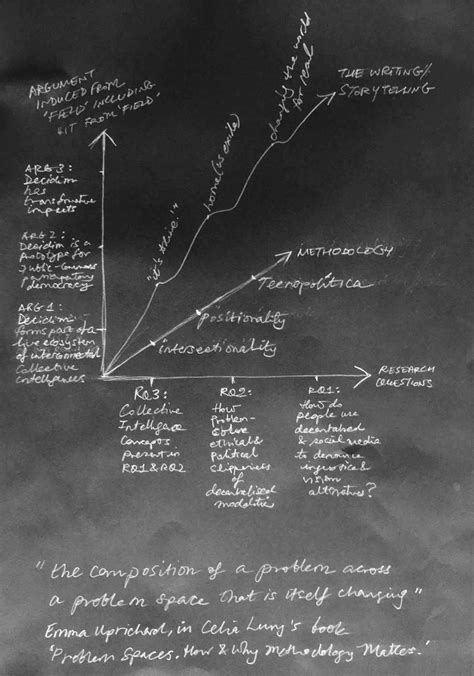 ARGUMENT
INDUCED FROM
'FIELD' INCLUDING
HIT FROM 'FIELD'.
ARG 3:
Decidim
has
transformative
impacts
ARG 2:
Decidim is a
prototype for
public-commons
participatory
democracy
ARG 1:
Decidim
forms part of a
live ecosystem
of interconnected
Collective
intelligences
"it's alive!"
home (as exile)
changing the world
for real
THE WRITING/
STORYTELLING
METHODOLOGY
Tecnopolítica
positionality
intersectionality
RESEARCH
QUESTIONS
RQ3:
Collective
Intelligence
Concepts
present in
RQ1 & RQ2
RQ2:
How
Problem-
ethical &
Political
of
decentralised
modalities
RQ1:
How do
people use
decentralised
& social media
to denounce
injustices &
vision
alternatives?
"the composition of a problem across
a problem space that is itself changing"
Emma Uprichard, in Celia Lury's book
'Problem Spaces. How & Why Methodology Matters.'